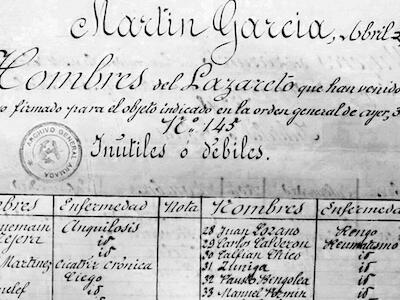 Martin Garcia, Abril 2
Hombres del Lazareto que han venido
o firmado para el objeto indicado en la orden general de ayer, 3
Nº 145
Inútiles ó débiles.
ARCHIVO GENERAL ARMADA
mbres Enfermedad Nota Hombres Enfermeda
Anquilosis 28 Juan Lozano Rengo
id 29 Carlos Calderon Reumatismo
id 30 Calfian Chico id
Martinez Cicatriz Crónica 31 Zuniga id
Ciego 32 id
id 33 Manuel id